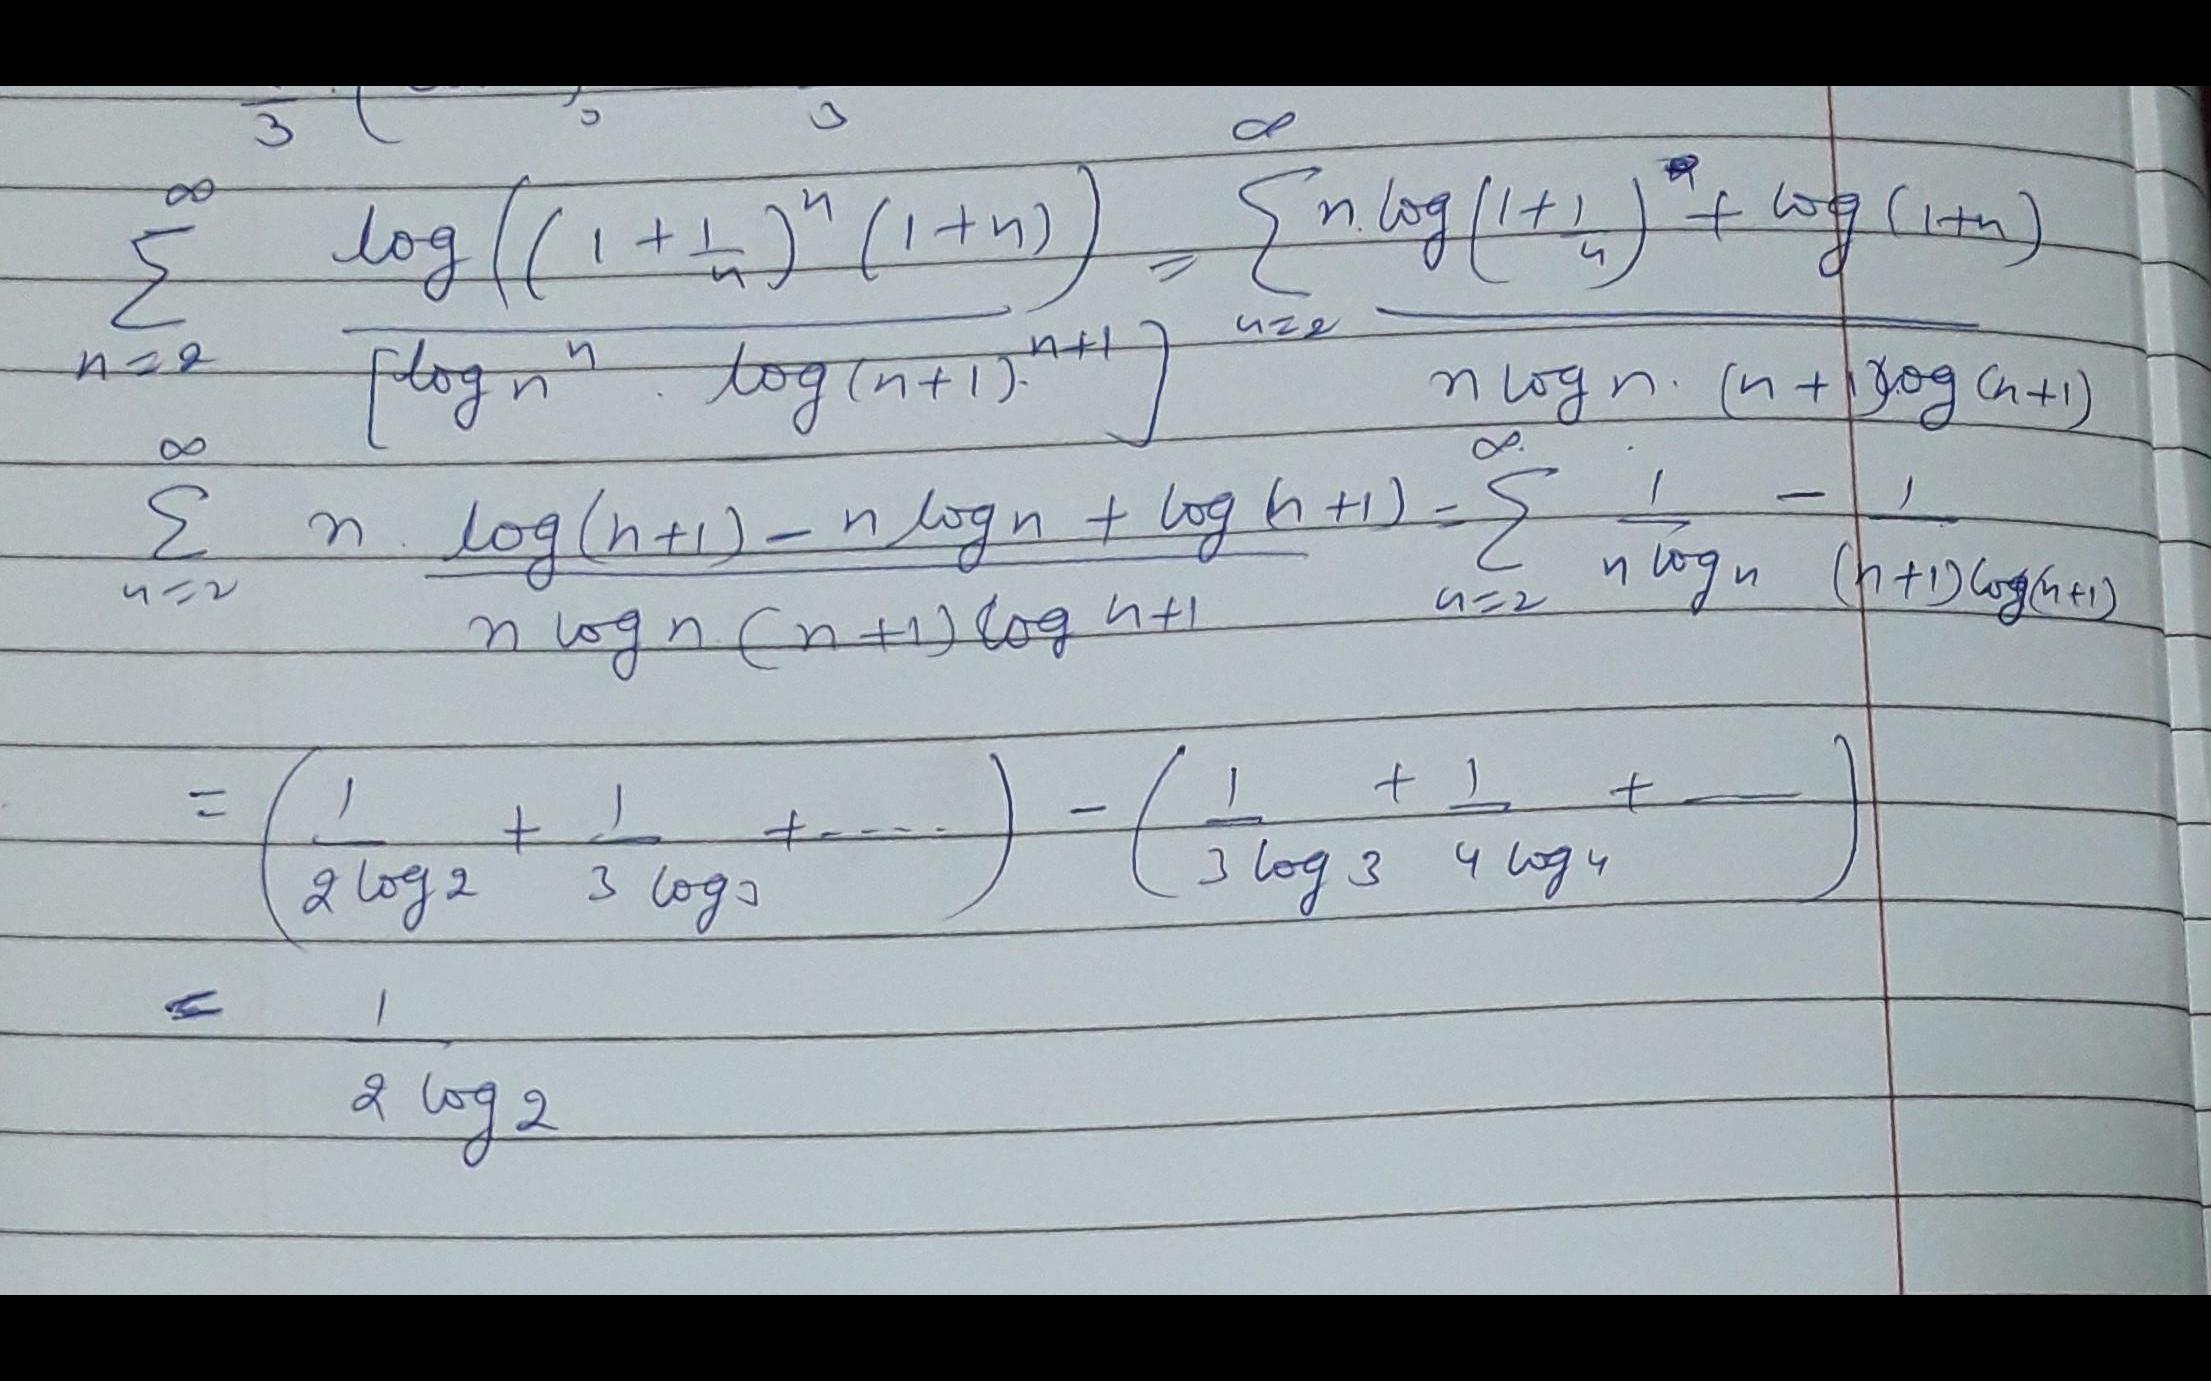 3 ( , 3
∞ ∑ n=2 log((1+1/n)^n (1+n)) / [log n^n . log(n+1).^n+1] = ∞ ∑ n=2 n.log(1+1/n) + log(1+n) / n log n. (n+1)log(n+1)
∞ ∑ n=2 n. log(n+1) - n log n + log(n+1) / n log n.(n+1) log n+1 = ∞. ∑ n=2 1/n log n - 1/(n+1)log(n+1)
= (1/2 log 2 + 1/3 log 3 + ----- ) - (1/3 log 3 + 1/4 log 4 + —— )
= 1/2 log 2